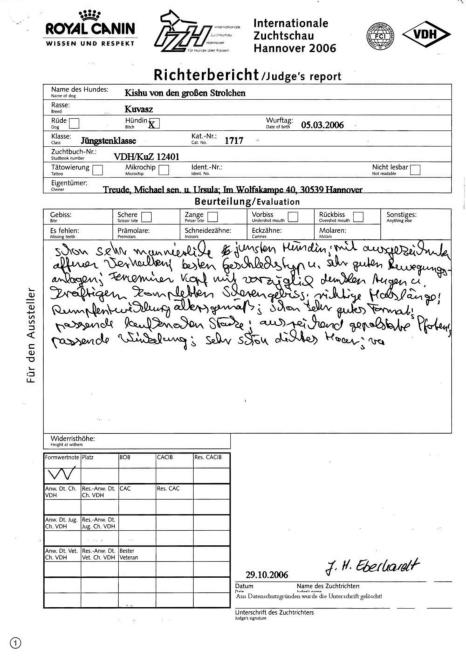 ROYAL CANIN
WISSEN UND RESPEKT
Internationale
Zuchtschau
Hannover
für Hunde aller Rassen
Internationale
Zuchtschau
Hannover 2006
FCI
VDH
Richterbericht /Judge's report
Name des Hundes:
Name of dog
Kishu von den großen Strolchen
Rasse:
Breed
Kuvasz
Rüde
Dog
Hündin X
Bitch
Wurftag:
Date of birth
05.03.2006
Klasse:
Class
Jüngstenklasse
Kat.-Nr.:
Cat. No.
1717
Zuchtbuch-Nr.:
Studbook number
VDH/KuZ 12401
Tätowierung
Tattoo
Mikrochip
Microchip
Ident.-Nr.:
Ident. No.
Nicht lesbar
Not readable
Eigentümer:
Owner
Treude, Michael sen. u. Ursula; Im Wolfskampe 40, 30539 Hannover
Beurteilung/Evaluation
Gebiss:
Bite
Schere
Scissor bite
Zange
Pincer bite
Vorbiss
Undershot mouth
Rückbiss
Overshot mouth
Sonstiges:
Anything else
Es fehlen:
Missing teeth
Prämolare:
Premolars
Schneidezähne:
Incisors
Eckzähne:
Canines
Molaren:
Molars
schon sehr jüngsten Hündin mit
offenem Verhalten; besten Geschlechtstyp u. sehr guten Bewegungs-
anlagen; Kopf mit vorzüglich dunklen Augen u.
kräftigem kompletten Scherengebiss; richtige Halslänge;
Rumpfentwicklung altersgemäß; schon sehr gutes Format;
passende Stärke; ausreichend gepolsterte Pfoten,
passende Winkelung; sehr schön dichtes Haar;
Für den Aussteller
Widerristhöhe:
Height at withers
Formwertnote Platz BOB CACIB Res. CACIB
VV
Anw. Dt. Ch. VDH
Res.-Anw. Dt. Ch. VDH
CAC
Res. CAC
Anw. Dt. Jug. Ch. VDH
Res.-Anw. Dt. Jug. Ch. VDH
Anw. Dt. Vet. Ch. VDH
Res.-Anw. Dt. Vet. Ch. VDH
Bester Veteran
29.10.2006
J. H. Eberhardt
Datum
Date
Name des Zuchtrichters
Judge's name
Aus Datenschutzgründen wurde die Unterschrift gelöscht!
Unterschrift des Zuchtrichters
Judge's signature
1